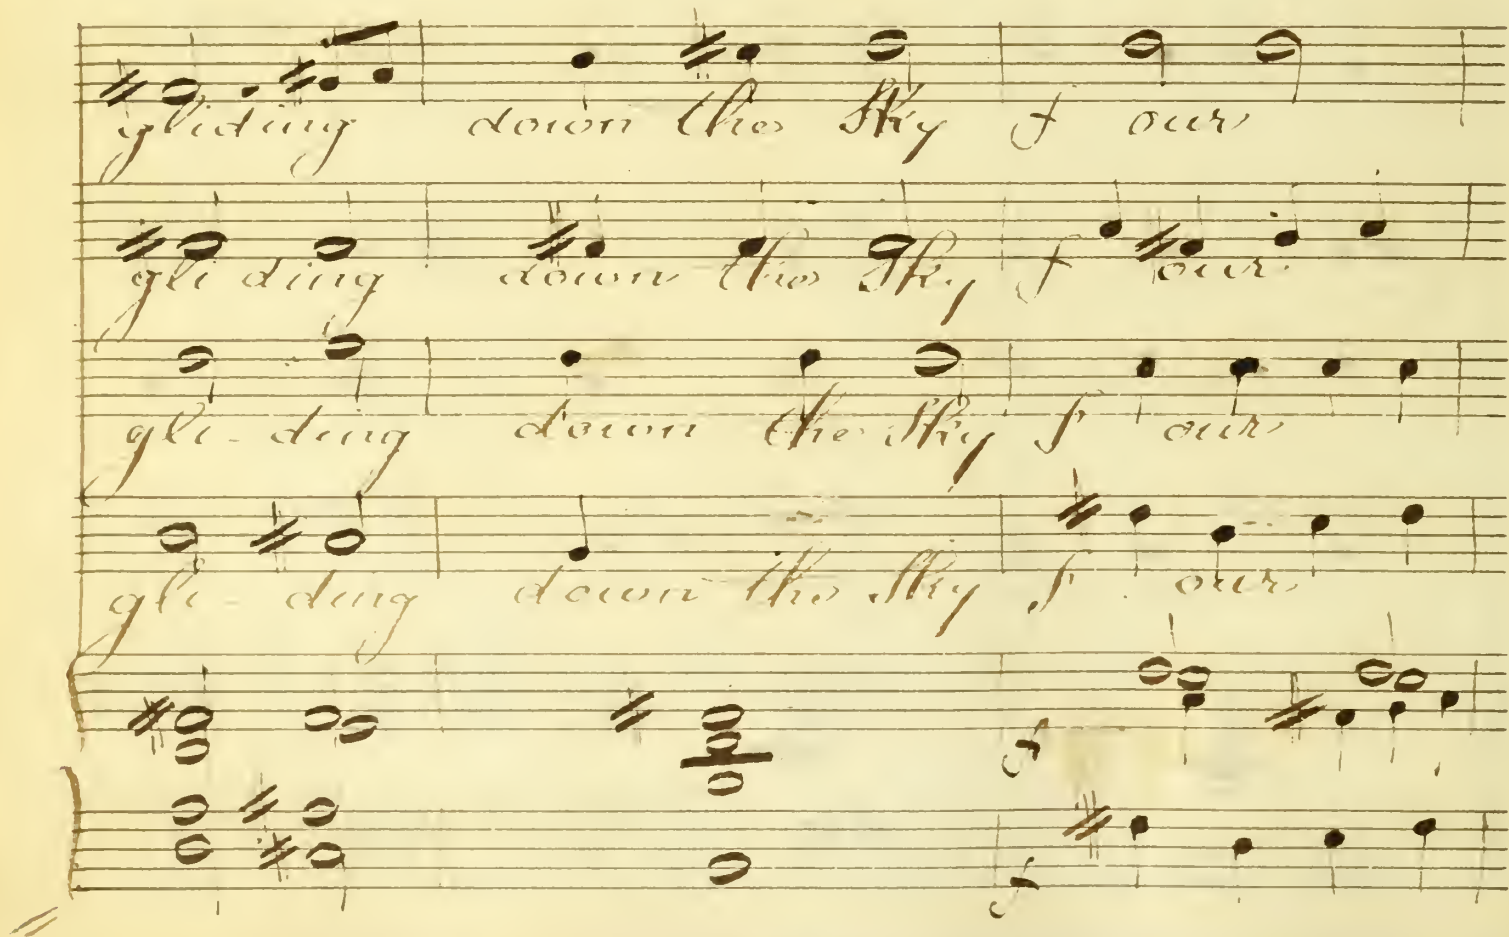 gliding down the Sky f our
gli ding down the Sky f our
gli - ding down the Sky f our
gli - ding down the Sky f our
f
f